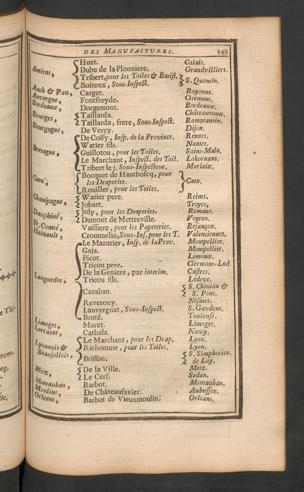 DES MANUFACTURES. 549
Amiens, Huet. Calais.
Dubu de la Plonniere. Grandvilliers.
Tribert, pour les Toiles & Batist. S. Quentin.
Boiteux, Sous-Inspect.
Auch & Pau, Carget. Bayonne.
Auvergne, Fontfreyde. Clermont.
Bordeaux, Dorgemont. Bordeaux.
Bourges, Taillarda. Châteauroux.
Taillarda, frere, Sous-Inspect. Romorantin.
Bourgogne, De Vercy. Dijon.
Bretagne, De Coisy, Insp. de la Province. Rennes.
Watier fils. Nantes.
Guillotou, pour les Toiles. Saint-Malo.
Le Marchant, Inspect. des Toil. Lokornans.
Tribert le j. Sous-Inspecteur. Morlaix.
Caen, Bocquet de Hautbosq, pour
les Draperies. Caen.
Rouiller, pour les Toiles.
Champagne, Watier pere. Reims.
Jobart. Troyes.
Dauphiné, Joly, pour les Draperies. Romans.
Dumont de Mettreville. Voyron.
F. Comté, Vaissiere, pour les Papeteries. Besançon.
Hainault, Crommelin, Sous-Insf. pour les T. Valenciennes.
Languedoc, Le Mazurier, Insp. de la Prov. Montpellier.
Gaja. Montpellier.
Picot. Limoux.
Tricou pere. Clermont-Lod.
De la Geniere, par interim. Castres.
Tricou fils. Lodeve.
Cazaban. S. Chinian &
S. Pont.
Reverony. Nismes.
Lauvergnat, Sous-Inspect. S. Gaudens.
Bruté. Toulouse.
Limoges, Muret. Limoges.
Lorraine, Cathala. Nancy.
Lyonnois & Beaujollois, Le Marchant, pour les Drap. Lyon.
Richomme, pour les Toiles. Lyon.
Brisson. S. Simphorien
de Lay.
Metz, De la Ville. Metz.
Le Cerf. Sedan.
Montauban, Barbot. Montauban.
Moulins, De Châteaufavier. Aubusson.
Orleans, Barbot de Vieuxmoulin. Orleans.